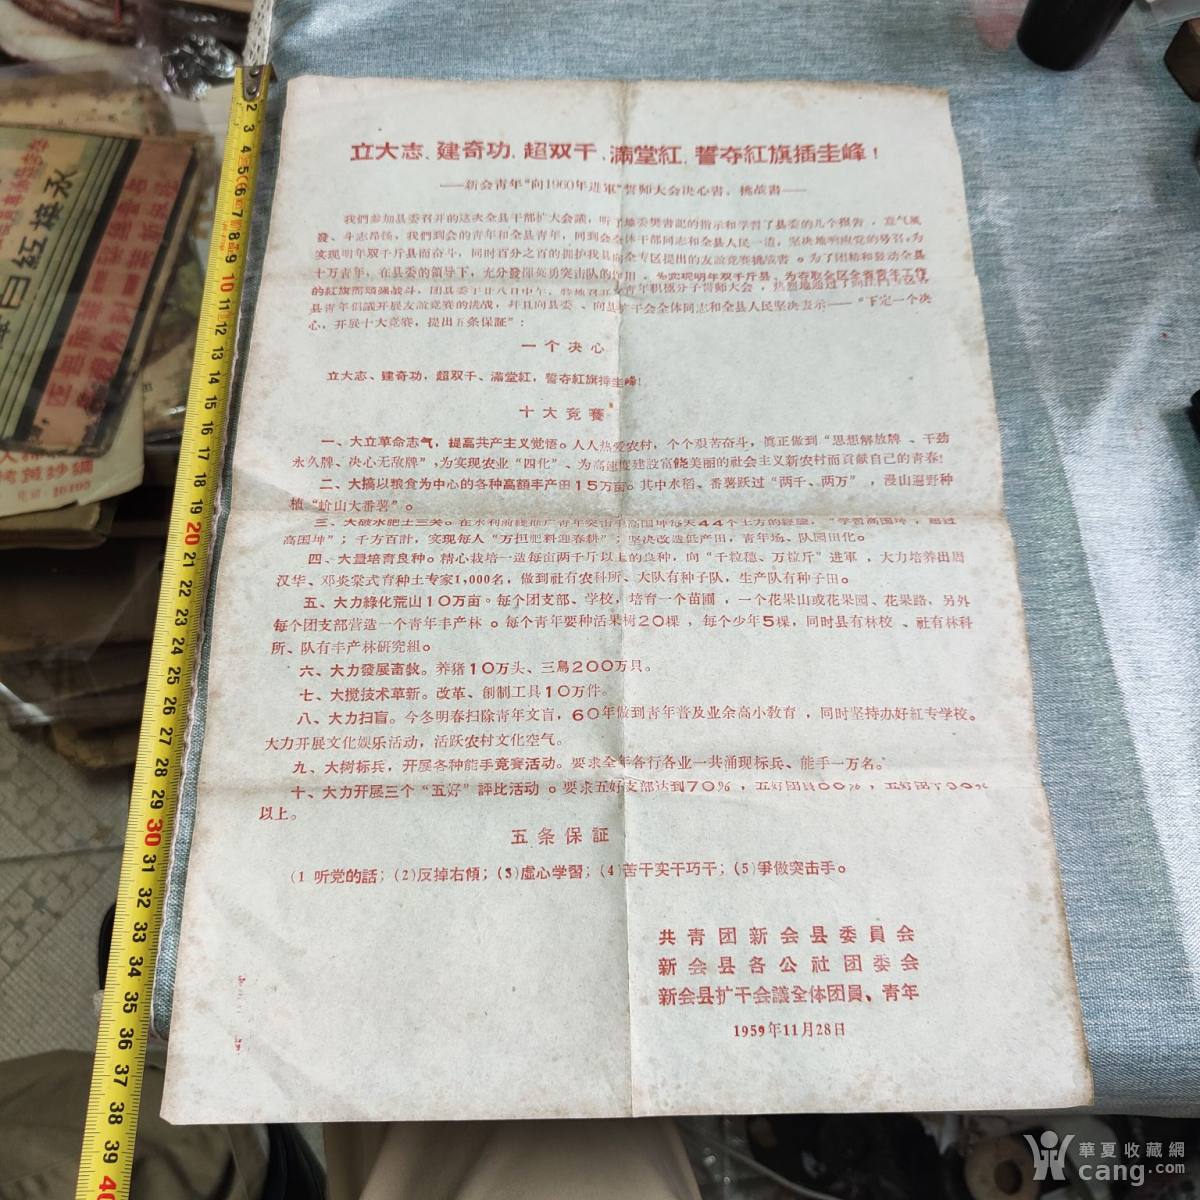 立大志、建奇功、超双千、满堂紅、誓夺紅旗插圭峰！
——新会青年"向1960年进軍"誓师大会决心書、挑战書——
我們参加县委召开的这次全县干部扩大会議，听了地委樊書記的指示和学習了县委的几个报告，意气風
發、斗志昂扬，我們到会的青年和全县青年，同到会全体干部同志和全县人民一道，坚决地响应党的号召，为
实现明年双千斤县而奋斗，同时百分之百的拥护我县向全专区提出的友誼竞賽挑战書。为了团結和發动全县
十万青年，在县委的領导下，充分發揮英勇突击队的作用，为实现明年双千斤县、为夺取全区全省青年工作
的紅旗而頑强战斗，团县委于廿八日中午，特地召开了青年积极分子誓师大会，热烈地通过了向江門专区各
县青年倡議开展友誼竞賽的挑战，并且向县委、向县扩干会全体同志和全县人民坚决表示——"下定一个决
心，开展十大竞賽，提出五条保証"：
一个决心
立大志、建奇功，超双千、满堂紅，誓夺紅旗插圭峰！
十大竞賽
一、大立革命志气，提高共产主义觉悟。人人热爱农村，个个艰苦奋斗，眞正做到"思想解放牌、干劲
永久牌、决心无敌牌"，为实现农业"四化"、为高速度建設富饒美丽的社会主义新农村而貢献自己的青春！
二、大搞以粮食为中心的各种高額丰产田15万亩。其中水稻、番薯跃过"两千、两万"，漫山遍野种
植"蚧山大番薯"。
三、大破水肥土三关。在水利前綫推广青年突击手高国坤每天44个土方的經驗，"学習高国坤，超过
高国坤"；千方百計，实现每人"万担肥料迎春耕"；坚决改造低产田，青年场、队園田化。
四、大量培育良种。精心栽培一造每亩两千斤以上的良种，向"千粒穗、万粒斤"进軍，大力培养出周
汉华、邓炎棠式育种土专家1,000名，做到社有农科所、大队有种子队，生产队有种子田。
五、大力綠化荒山10万亩。每个团支部、学校，培育一个苗圃，一个花果山或花果園、花果路，另外
每个团支部营造一个青年丰产林。每个青年要种活果树20棵，每个少年5棵，同时县有林校、社有林科
所、队有丰产林研究組。
六、大力發展畜牧。养猪10万头、三鳥200万只。
七、大搅技术革新。改革、創制工具10万件。
八、大力扫盲。今冬明春扫除青年文盲，60年做到青年普及业余高小教育，同时坚持办好紅专学校。
大力开展文化娱乐活动，活跃农村文化空气。
九、大树标兵，开展各种能手竞賽活动。要求全年各行各业一共涌现标兵、能手一万名。
十、大力开展三个"五好"評比活动。要求五好支部达到70%，五好团員
以上。
五条保証
(1)听党的話；(2)反掉右傾；(3)虚心学習；(4)苦干实干巧干；(5)爭做突击手。
共青团新会县委員会
新会县各公社团委会
新会县扩干会議全体团員、青年
1959年11月28日
华夏收藏網
cang.com